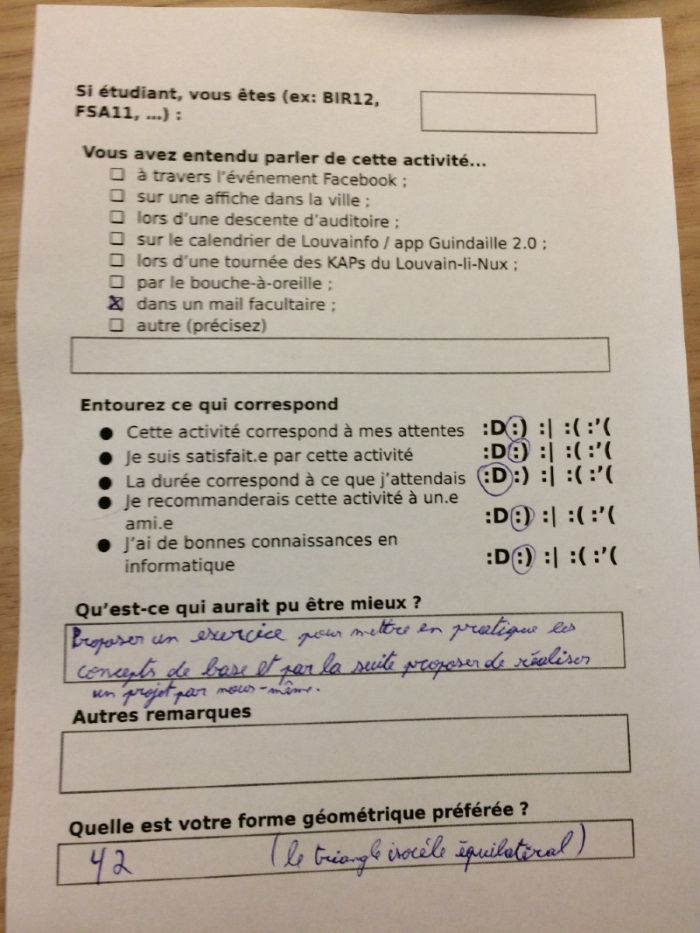 Si étudiant, vous êtes (ex: BIR12,
FSA11, ...) :
Vous avez entendu parler de cette activité...
☐ à travers l'événement Facebook ;
☐ sur une affiche dans la ville ;
☐ lors d'une descente d'auditoire ;
☐ sur le calendrier de Louvainfo / app Guindaille 2.0 ;
☐ lors d'une tournée des KAPs du Louvain-li-Nux ;
☐ par le bouche-à-oreille ;
☒ dans un mail facultaire ;
☐ autre (précisez)
Entourez ce qui correspond
● Cette activité correspond à mes attentes :D :) :| :( :'(
● Je suis satisfait.e par cette activité :D :) :| :( :'(
● La durée correspond à ce que j'attendais :D :) :| :( :'(
● Je recommanderais cette activité à un.e
ami.e :D :) :| :( :'(
● J'ai de bonnes connaissances en
informatique :D :) :| :( :'(
Qu'est-ce qui aurait pu être mieux ?
Proposer un exercice pour mettre en pratique les
concepts de base et par la suite proposer de réaliser
un projet par nous-même.
Autres remarques
Quelle est votre forme géométrique préférée ?
42 (le triangle isocèle équilatéral)